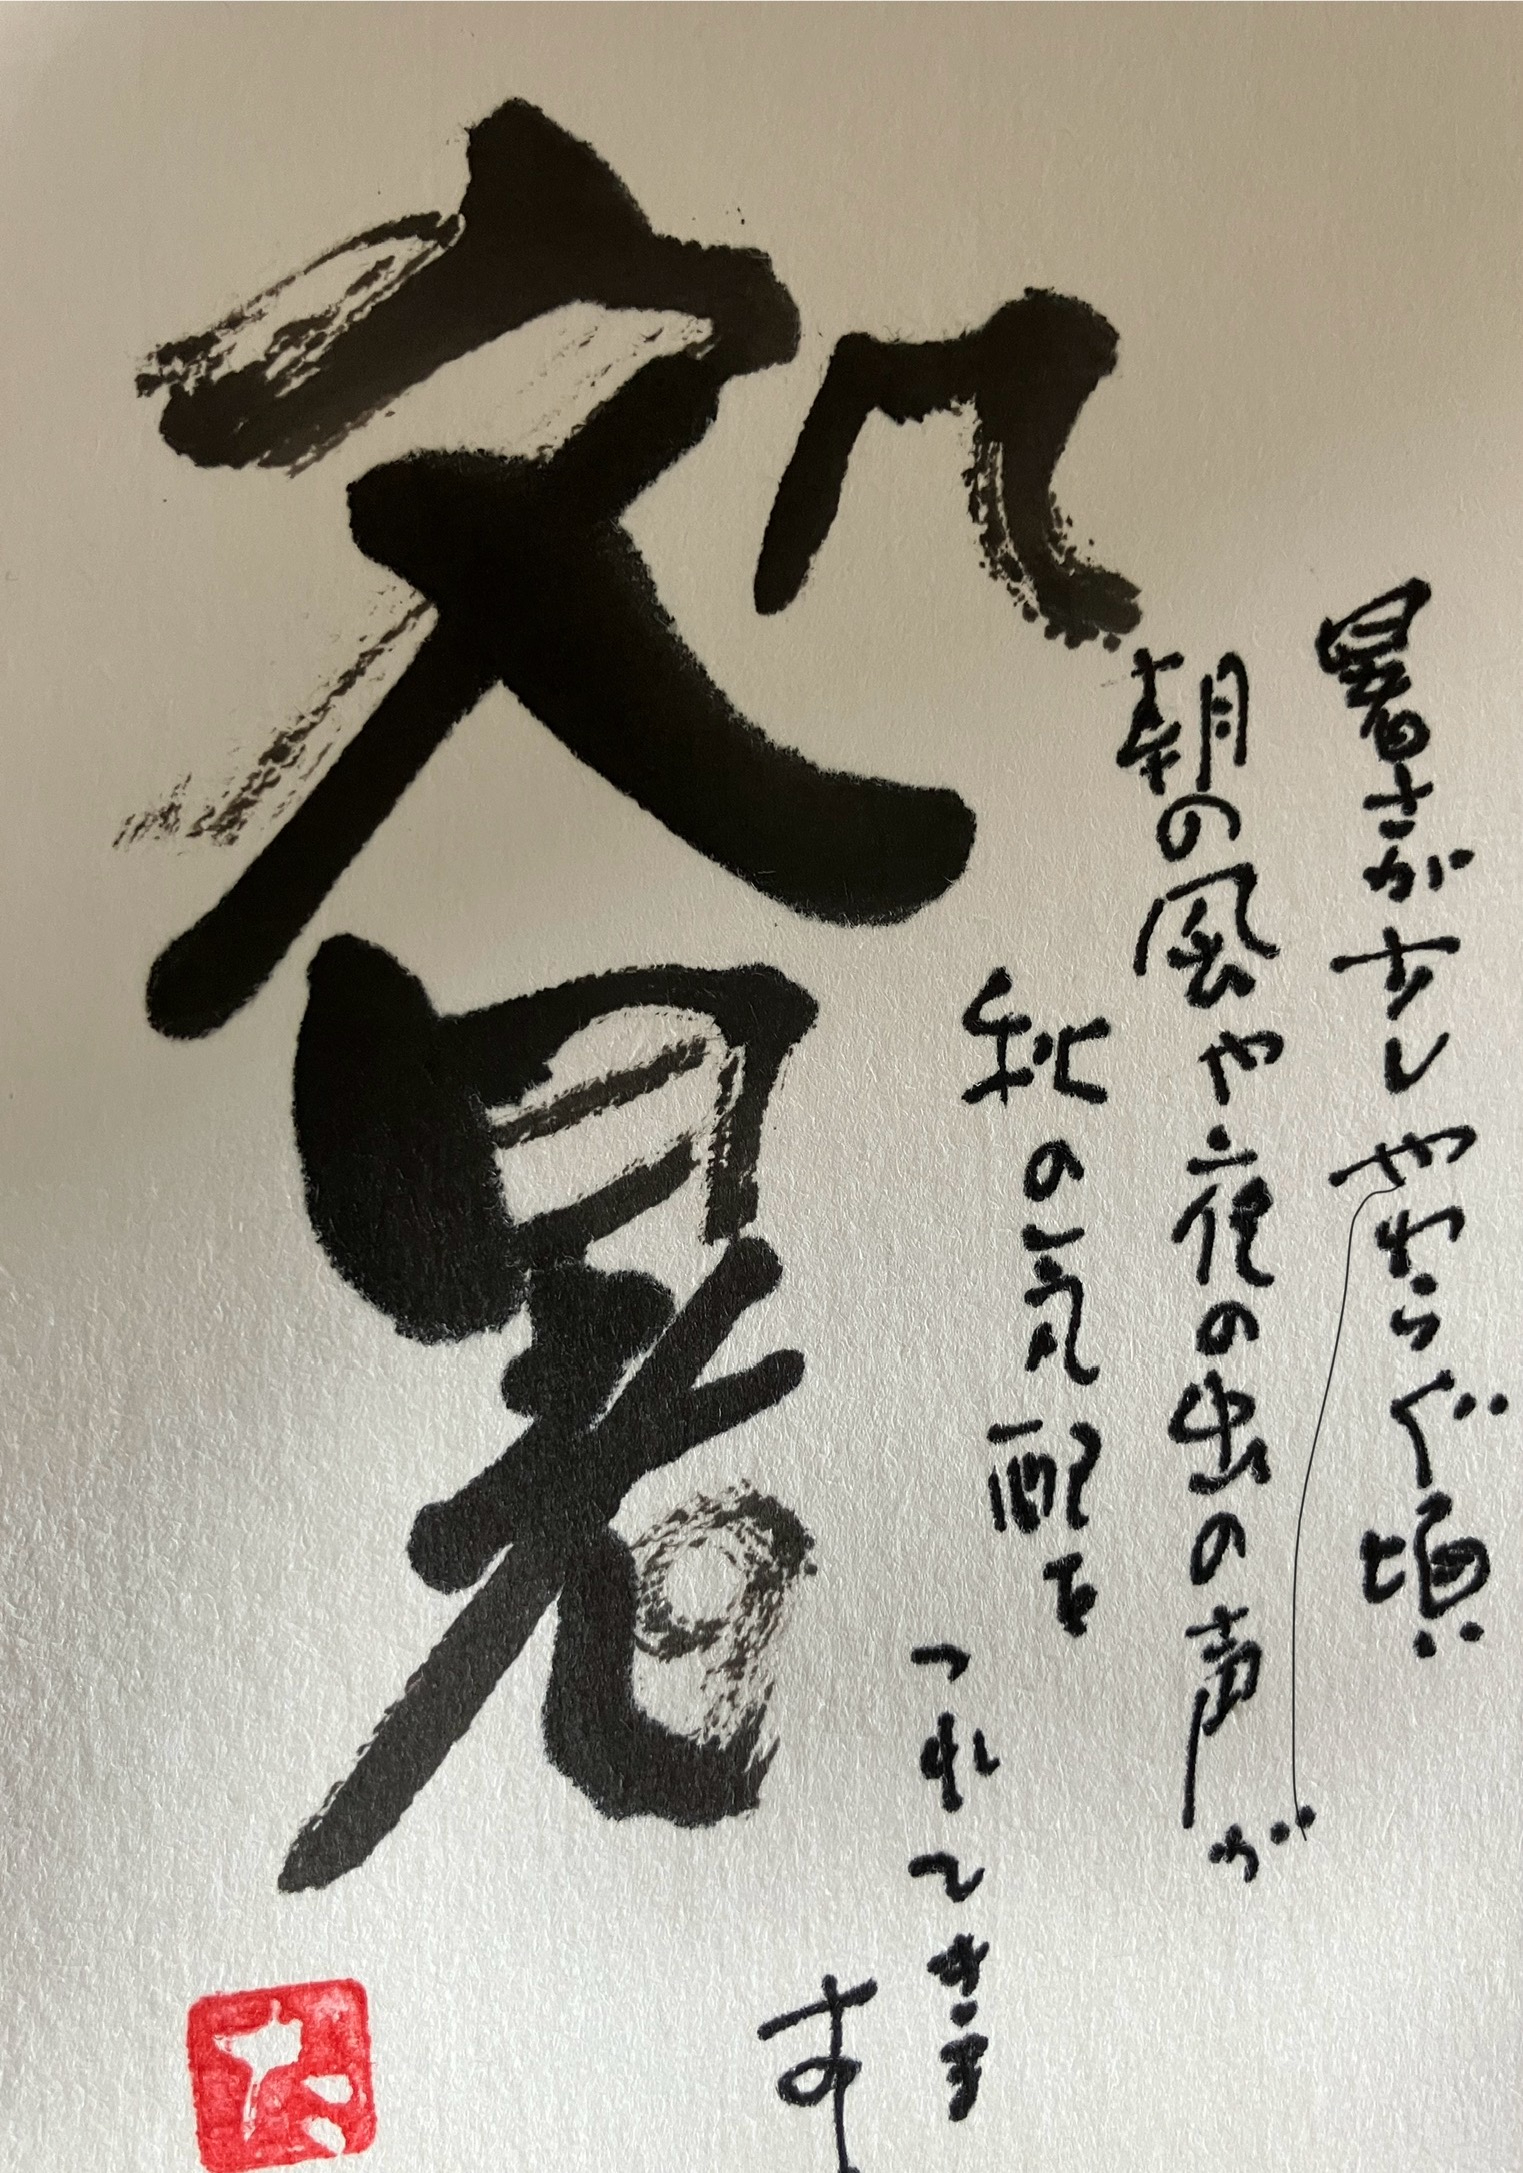 処暑
暑さが少しやわらぐ頃
朝の風や夜の虫の声が
秋の気配を
つれてきま
す